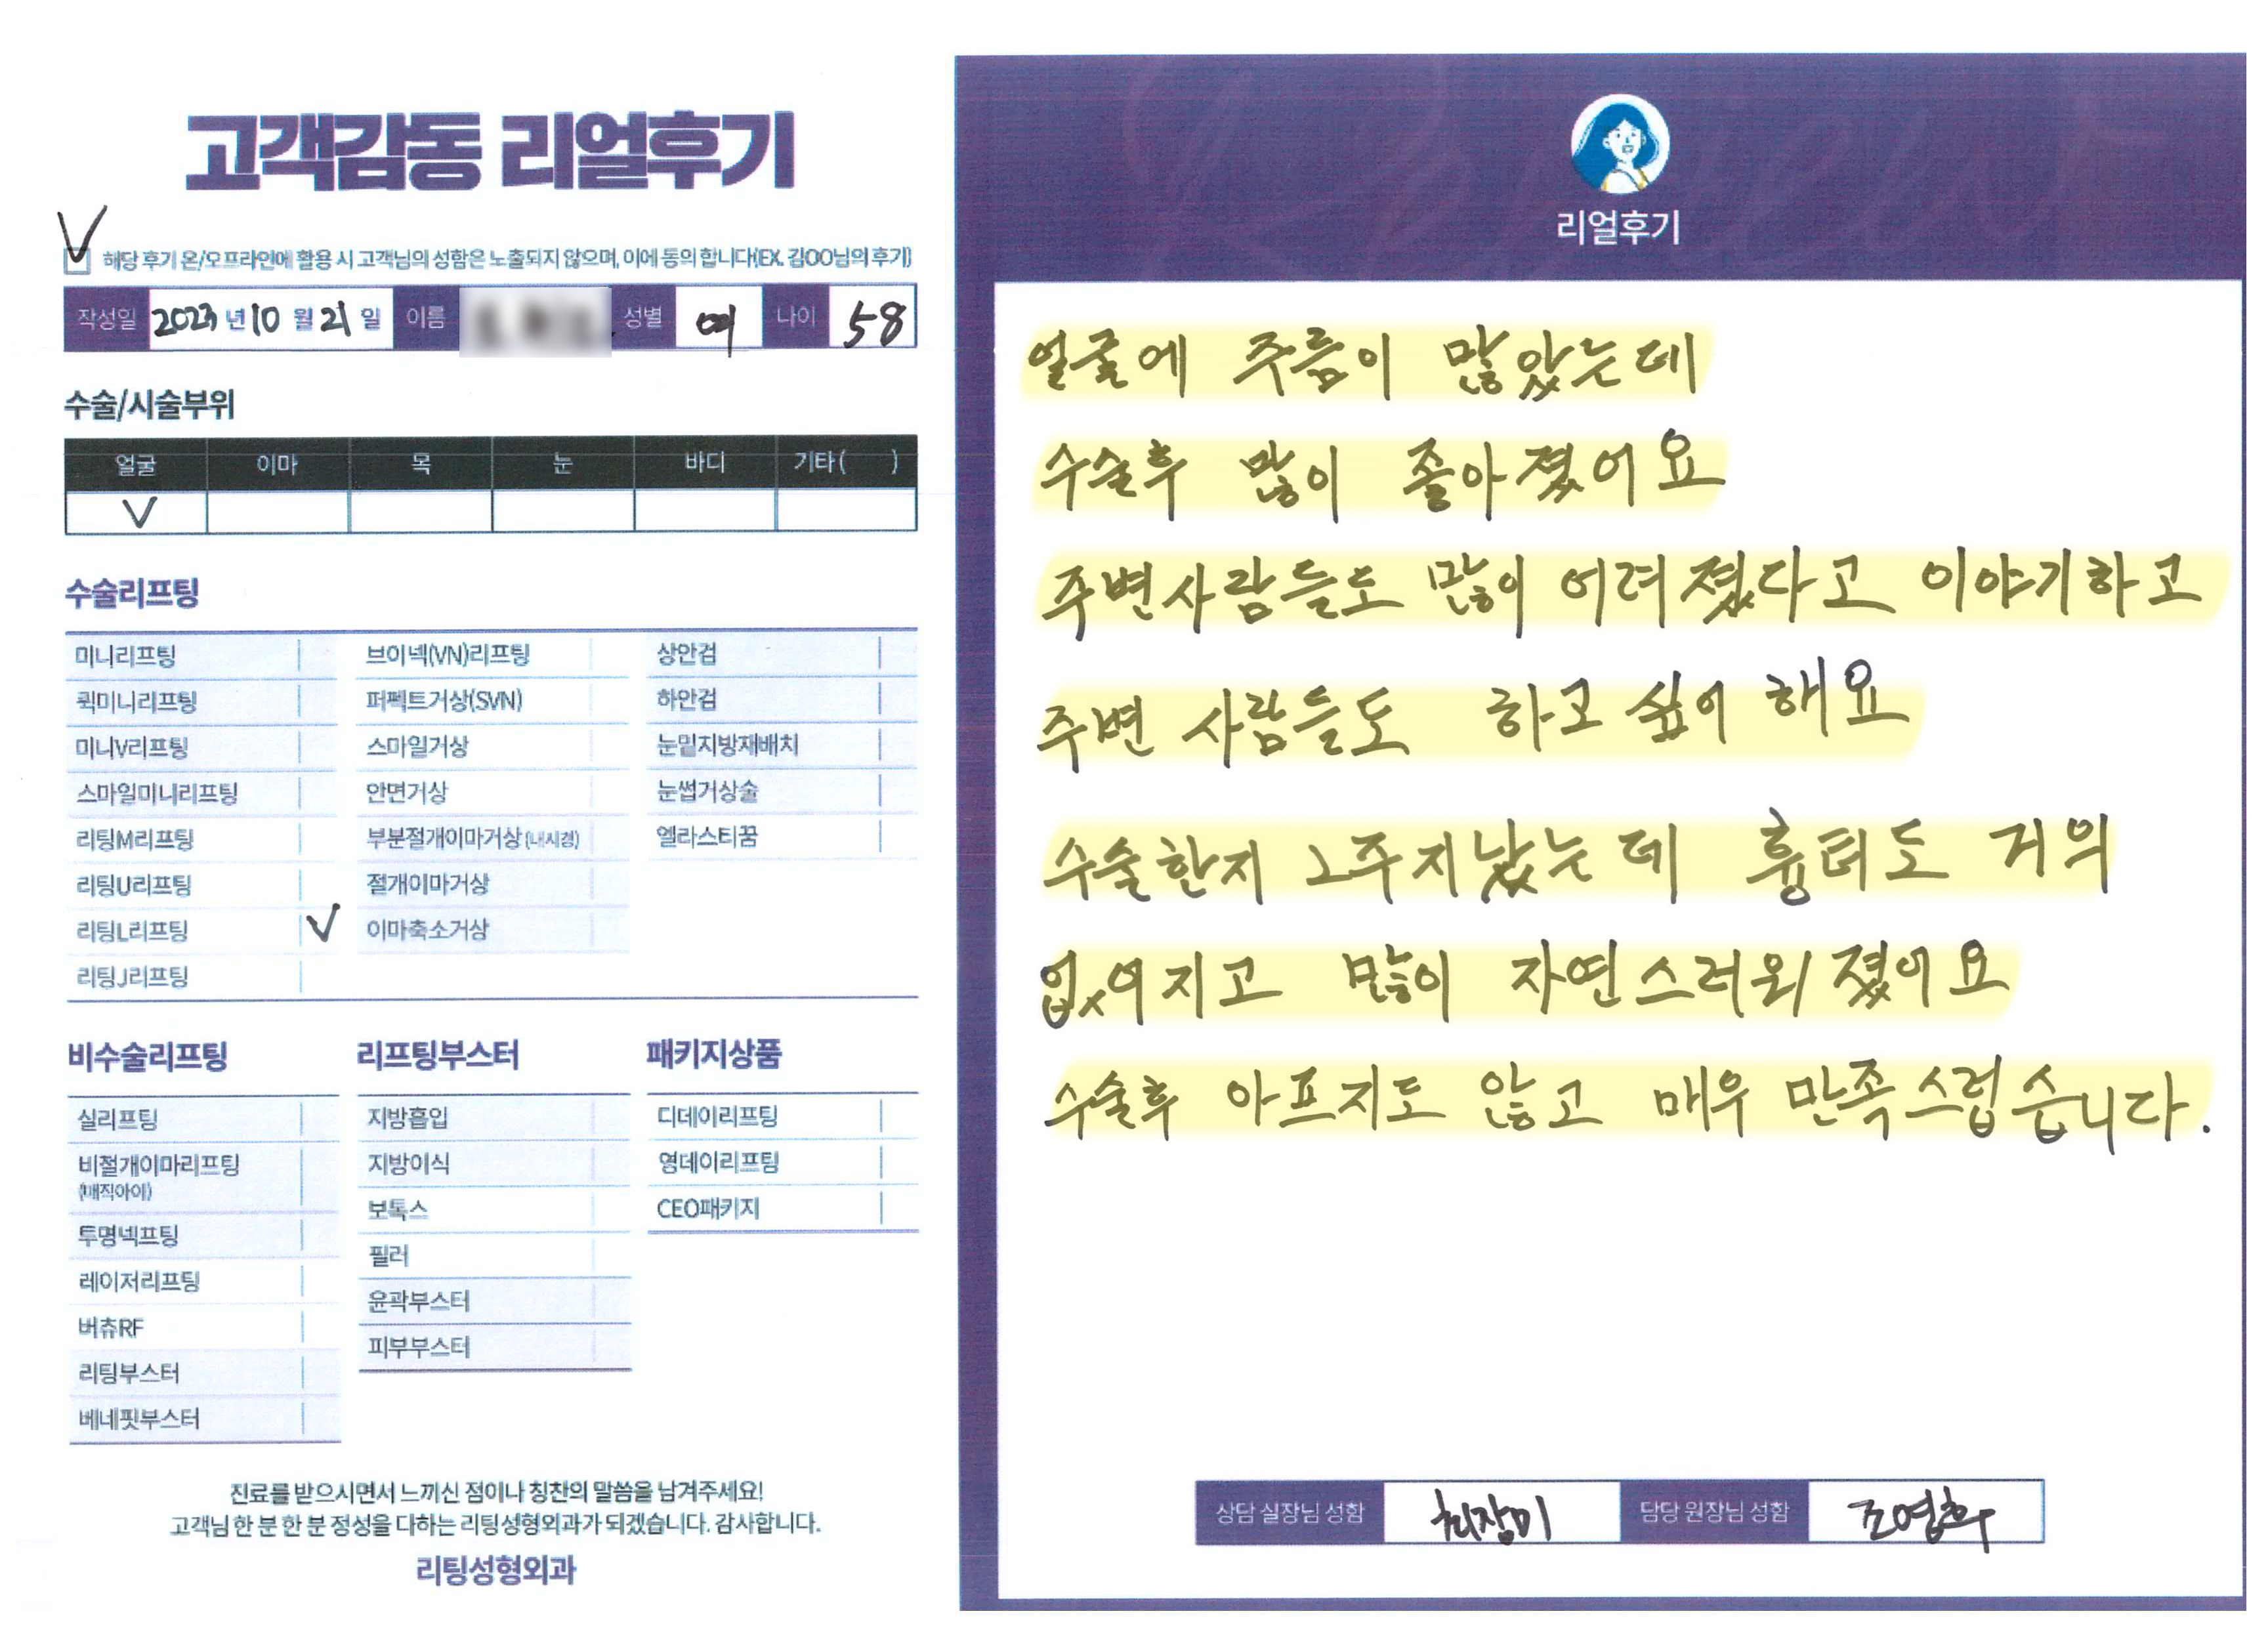 고객감동 리얼후기
해당 후기 온/오프라인에 활용 시 고객님의 성함은 노출되지 않으며, 이에 동의 합니다(EX. 김OO님의 후기)
작성일 2023년 10월 21일 이름 성별 여 나이 58
수술/시술부위
얼굴 이마 목 눈 바디 기타( )
V
수술리프팅
미니리프팅 브이넥(VN)리프팅 상안검
퀵미니리프팅 퍼펙트거상(SVN) 하안검
미니V리프팅 스마일거상 눈밑지방재배치
스마일미니리프팅 안면거상 눈썹거상술
리팅M리프팅 부분절개이마거상(내시경) 엘라스티꿈
리팅U리프팅 절개이마거상
리팅L리프팅 V 이마축소거상
리팅J리프팅
비수술리프팅 리프팅부스터 패키지상품
실리프팅 지방흡입 디데이리프팅
비절개이마리프팅 지방이식 영데이리프팅
(매직아이) 보톡스 CEO패키지
투명넥프팅 필러
레이저리프팅 윤곽부스터
버츄RF 피부부스터
리팅부스터
베네핏부스터
진료를 받으시면서 느끼신 점이나 칭찬의 말씀을 남겨주세요!
고객님 한 분 한 분 정성을 다하는 리팅성형외과가 되겠습니다. 감사합니다.
리팅성형외과
리얼후기
얼굴에 주름이 많았는데
수술후 많이 좋아졌어요
주변사람들도 많이 어려졌다고 이야기하고
주변 사람들도 하고 싶어 해요
수술한지 2주지났는데 흉터도 거의
없어지고 많이 자연스러워졌어요
수술후 아프지도 않고 매우 만족스럽습니다.
상담 실장님 성함 최장미 담당 원장님 성함 조영환